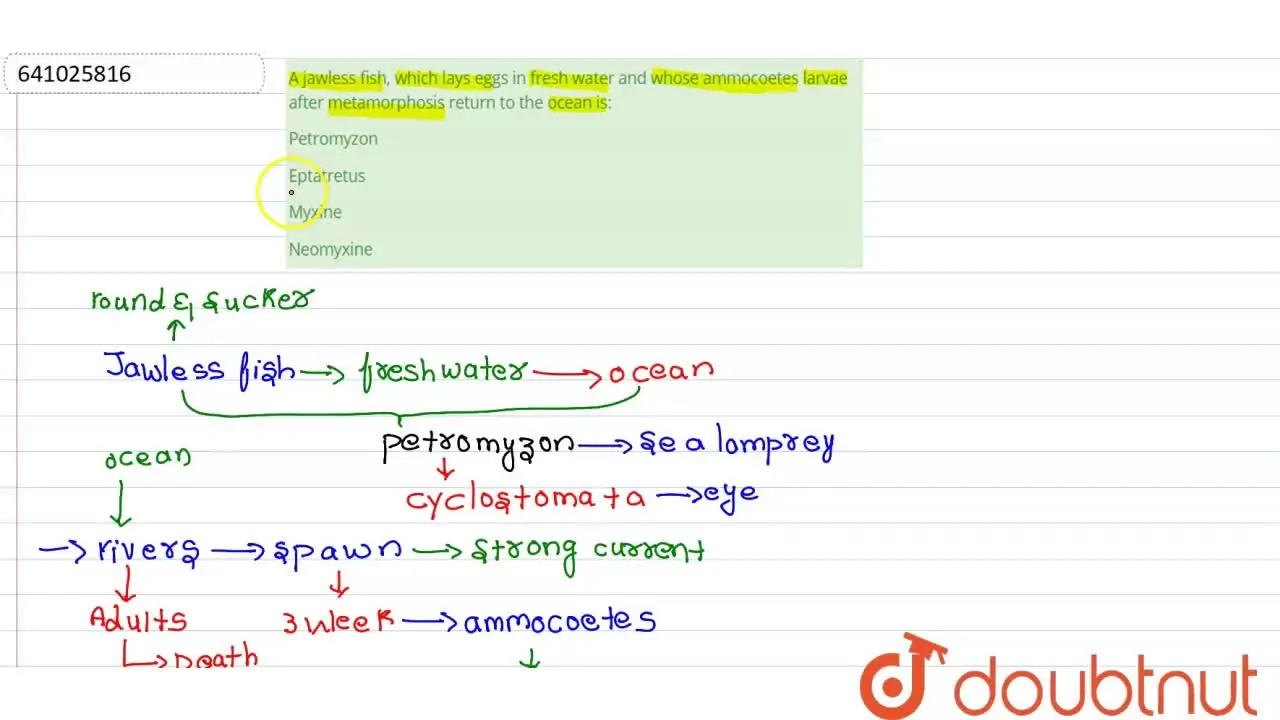 641025816
A jawless fish, which lays eggs in fresh water and whose ammocoetes larvae
after metamorphosis return to the ocean is:
Petromyzon
Eptatretus
Myxine
Neomyxine
round & sucker
Jawless fish → freshwater → ocean
petromyzon → sea lomprey
ocean
cyclostomata → eye
→ rivers → spawn → strong current
Adults 3 week → ammocoetes
Death
doubtnut